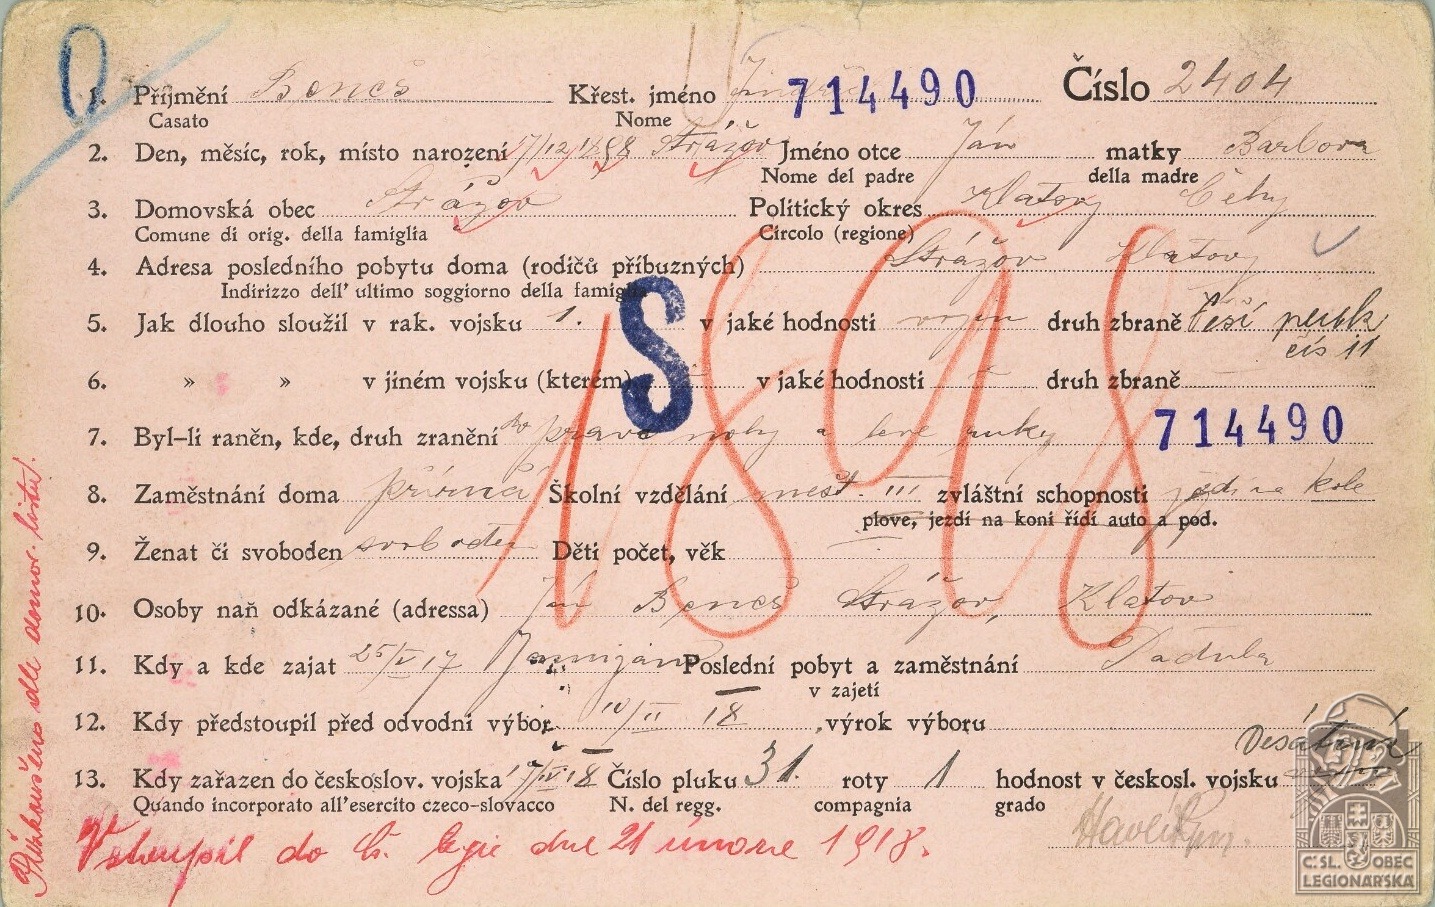 1. Příjmení Beneš Křest. jméno 714490 Číslo 2404
Casato Nome
2. Den, měsíc, rok, místo narození 17/12 1898 Strážov Jméno otce Ján matky Barbora
Nome del padre della madre
3. Domovská obec Strážov Politický okres Klatovy Čechy
Comune di orig. della famiglia Circolo (regione)
4. Adresa posledního pobytu doma (rodičů příbuzných) Strážov Klatovy
Indirizzo dell' ultimo soggiorno della famiglia
S
5. Jak dlouho sloužil v rak. vojsku 1. v jaké hodnosti vojín druh zbraně pěší
čís 11
6. » » v jiném vojsku (kterém) v jaké hodnosti druh zbraně
1898
714490
7. Byl-li raněn, kde, druh zranění do pravé nohy a levé ruky
8. Zaměstnání doma Školní vzdělání měst. III zvláštní schopnosti kole
plove, jezdí na koni řídí auto a pod.
9. Ženat či svoboden svoboden Děti počet, věk
10. Osoby naň odkázané (adressa) Ján Beneš Strážov, Klatov
11. Kdy a kde zajat 25/V 17 Poslední pobyt a zaměstnání Padula
v zajetí
12. Kdy předstoupil před odvodní výbor 10/II 18 , výrok výboru
13. Kdy zařazen do českoslov. vojska /IV 18 Číslo pluku 31. roty 1 hodnost v českosl. vojsku Desátník
Quando incorporato all'esercito czeco-slovacco N. del regg. compagnia grado
Vstoupil do čs. legie dne 21 února 1918.
Havlík
dle domov. listu.
Č.SL. OBEC
LEGIONÁŘSKÁ